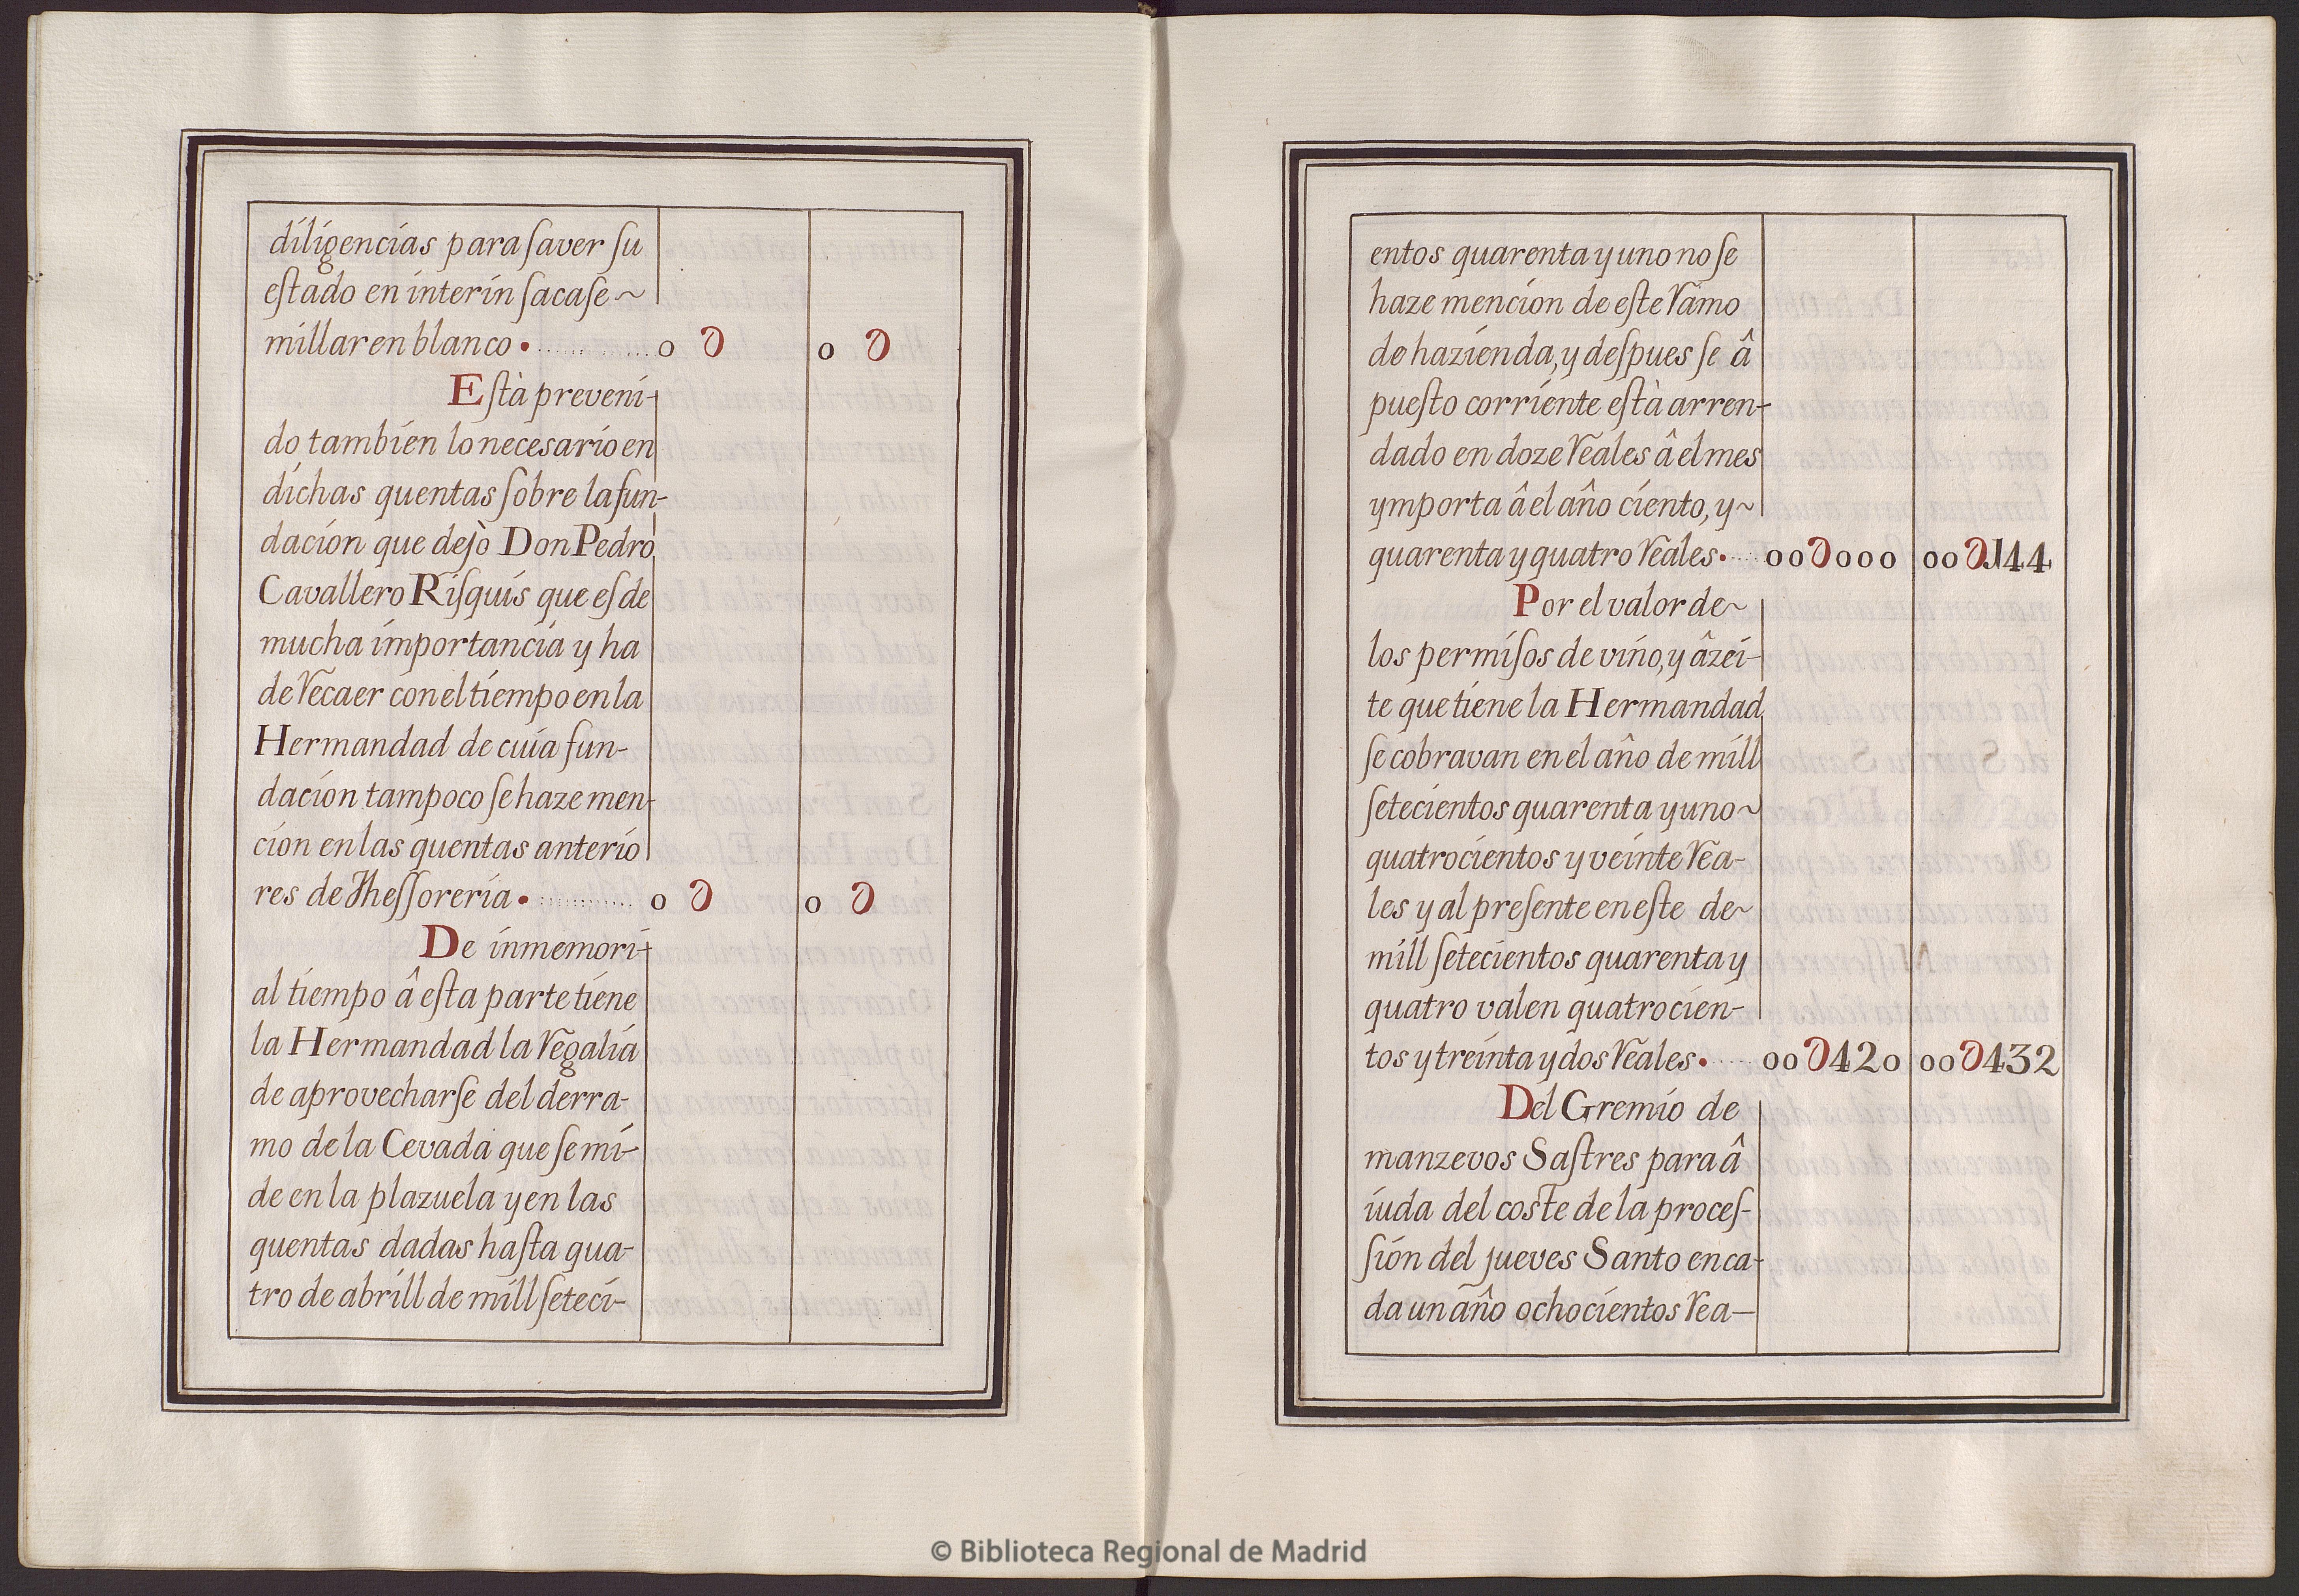 diligencias para saver su
estado en interin sacase~
millar en blanco. o D o D
Està preveni-
do tambien lo necesario en
dichas quentas sobre la fun-
dacion que dejò Don Pedro
Cavallero Risquis que es de
mucha importancia y ha
de recaer con el tiempo en la
Hermandad de cuia fun-
dacion tampoco se haze men-
cion en las quentas anterio
res de Thessoreria. o D o D
De inmemori-
al tiempo â esta parte tiene
la Hermandad la regalia
de aprovecharse del derra-
mo de la Cevada que se mi-
de en la plazuela y en las
quentas dadas hasta qua-
tro de abrill de mill seteci-
entos quarenta y uno no se
haze mencion de este ramo
de hazienda, y despues se â
puesto corriente està arren-
dado en doze reales â el mes
ymporta â el año ciento, y~
quarenta y quatro reales. 00D000 00D144
Por el valor de~
los permisos de vino, y âzei-
te que tiene la Hermandad
se cobravan en el año de mill
setecientos quarenta y uno~
quatrocientos y veinte rea-
les y al presente en este de~
mill setecientos quarenta y
quatro valen quatrocien-
tos y treinta y dos reales. 00D420 00D432
Del Gremio de
manzevos Sastres para â
iuda del coste de la proces-
sión del jueves Santo en ca-
da un año ochocientos rea-
© Biblioteca Regional de Madrid